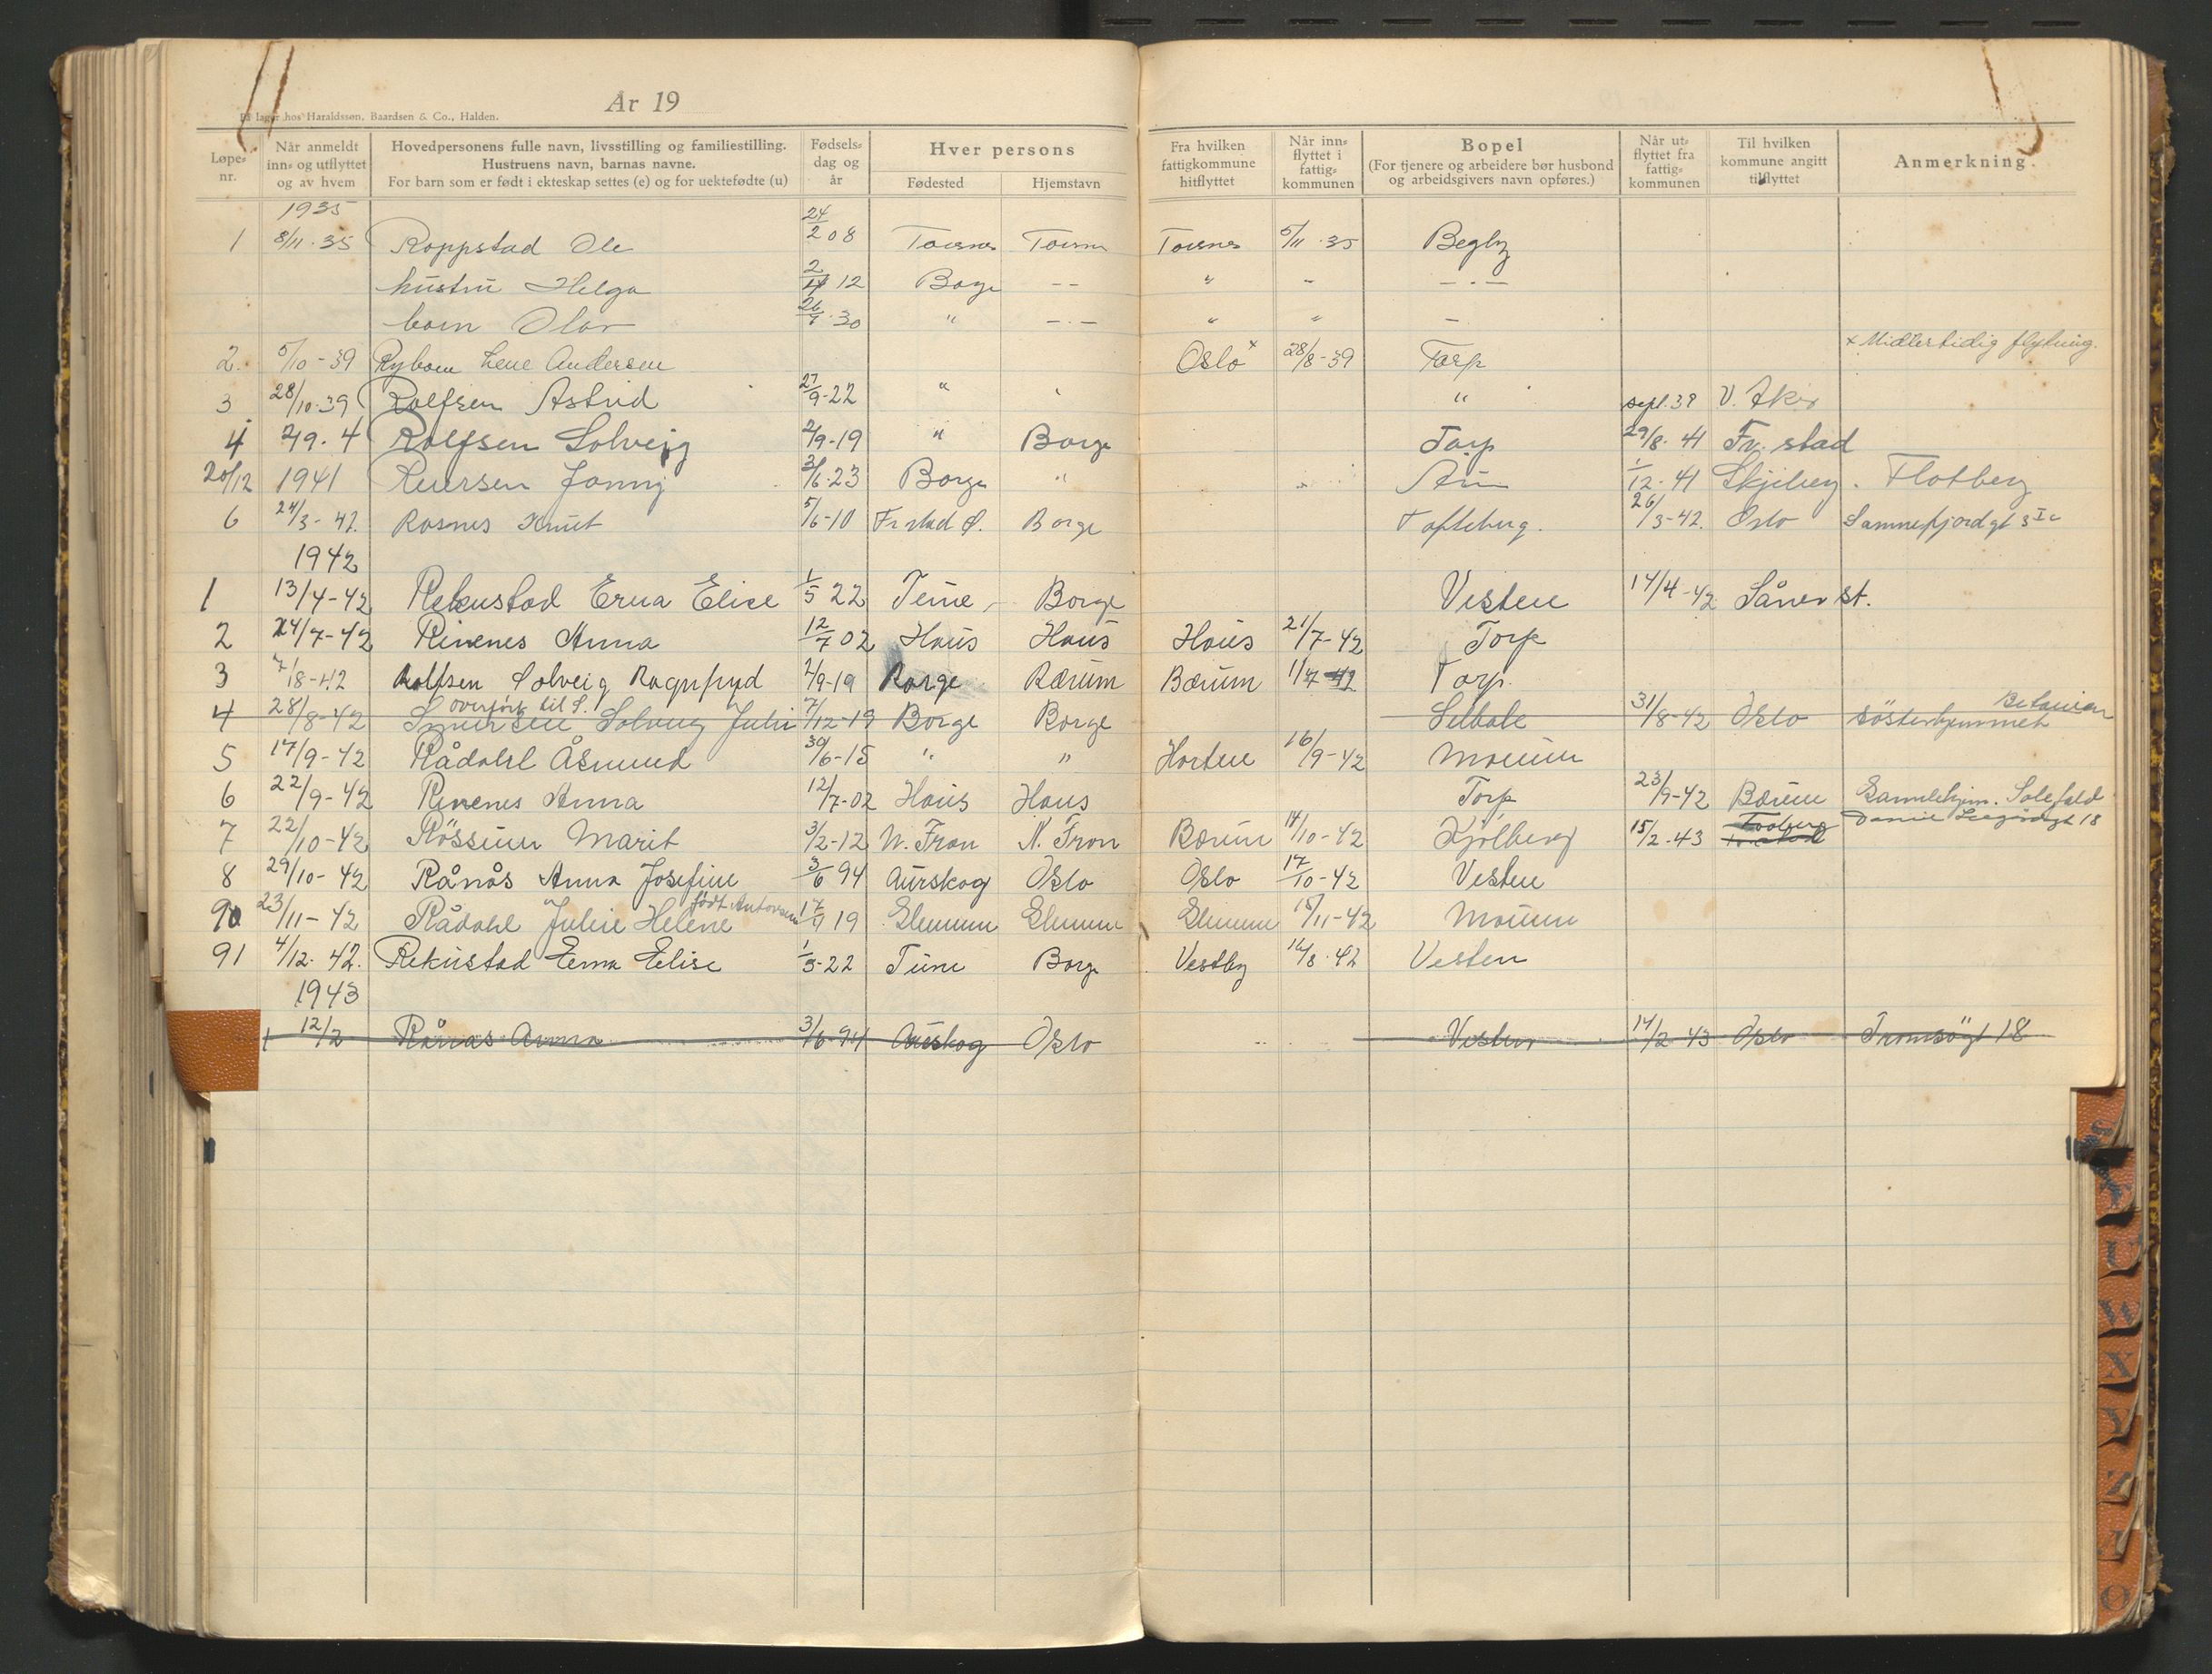 År 19
På lager hos Haraldssøn, Baardsen & Co., Halden.
Løpe-nr. Når anmeldt inn- og utflyttet og av hvem Hovedpersonens fulle navn, livsstilling og familiestilling. Hustruens navn, barnas navne. For barn som er født i ekteskap settes (e) og for uektefødte (u) Fødsels-dag og år Hver persons Fødested Hjemstavn Fra hvilken fattigkommune hitflyttet Når inn-flyttet i fattig-kommunen Bopel (For tjenere og arbeidere bør husbond og arbeidsgivers navn opføres.) Når ut-flyttet fra fattig-kommunen Til hvilken kommune angitt tilflyttet Anmerkning
1935
1 8/11.35 Roppstad Ole 24/2 08 5/11.35 Begby
hustru Helga 12 Borge -- " " -.-
barn Olav 26/7.30 " -.- " " -
2. 5/10-39 Rybom Lene Andersen Oslo x 28/8-39 Torp x Midlertidig flytning.
3 28/10.39 Rolfsen Astrid 27/9-22 " " sept.39 V. Aker
4 Rolfsen Solveig 2/9-19 " Borge Torp 29/8-41 Fr.stad
20/12 1941 Jonny 3/6.23 Borge " 1/12-41 Skjeberg. Flatberg
6 24/3-42. Rosnes Knut 5/6-10 Fr stad Borge 26/3-42. Oslo
1942
1 13/4-42 Rekustad Erna Elise 1/5 22 Tune Borge Vesten 14/4-42 Såner st.
2 24/7-42 Rinenes Anna 12/7 02 Haus Haus Haus 21/7-42 Torp
3 7/8-42 Rolfsen Solveig Ragnfryd 2/9-19 Borge Bærum Bærum 1/7 42 Torp.
overført til S.
4 28/8-42 Solveig Juli 7/12-19 Borge Borge Selbak 31/8-42 Oslo Betanien Søsterhjemmet
5 17/9-42 Rådahl Åsmund 30/6-15 " " Horten 16/9-42 Moum
6 22/9-42 Rinenes Anna 12/7-02 Haus Haus Torp 23/9-42 Bærum Gamlehjem. Solefald
7 22/10-42 Røssum Marit 3/2-12 N. Fron N. Fron Bærum 14/10-42 Kjølberg 15/2.43 18
8 29/10-42 Rånås Anna Josefine 3/6 94 Aurskog Oslo Oslo 17/10-42 Vesten
født Antonsen
90 23/11-42 Rådahl Julie Helene 19 Glemmen Glemmen Glemmen 15/11-42 Moum
91 4/12.42. Rekustad Erna Elise 1/5-22 Tune Borge Vestby 16/8.42 Vesten
1943
1 12/2 Rånås Anna 3/6-94 Aurskog Oslo Vesten 14/2-43 Oslo Tromsögt 18
U
W
X
Y
Z
Æ
Ø